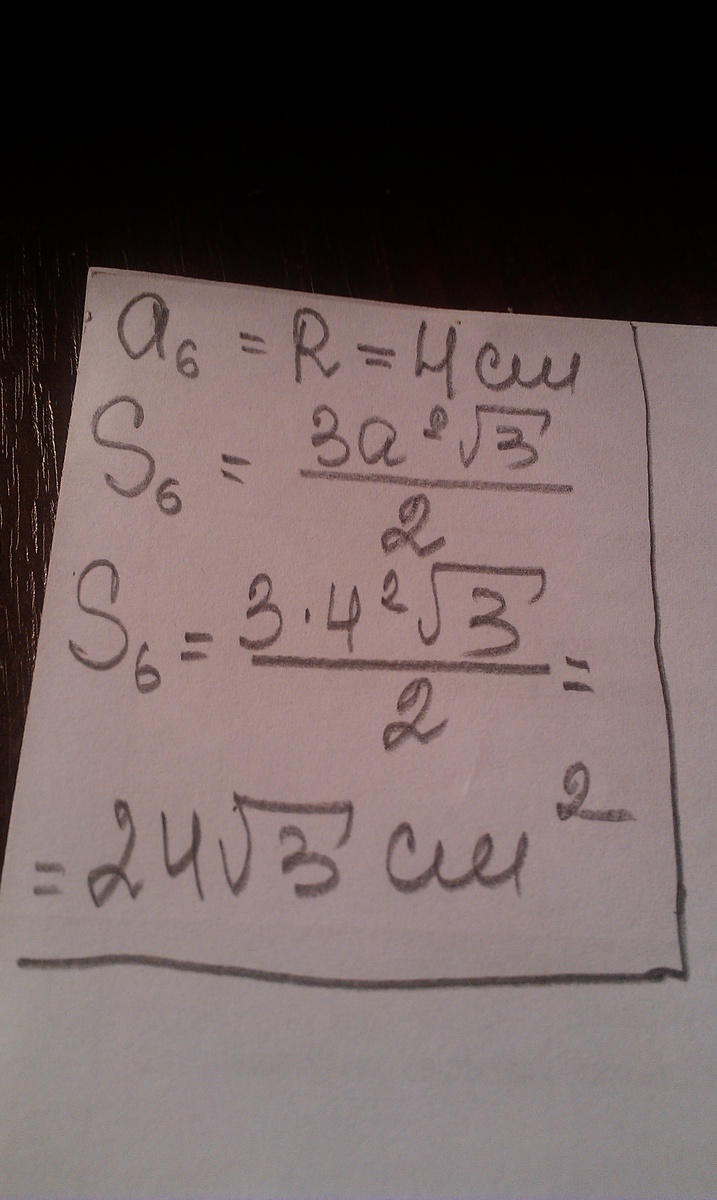 a₆ = R = 4 см
S₆ = 3a²√3 / 2
S₆ = 3·4²√3 / 2 =
= 24√3 см²